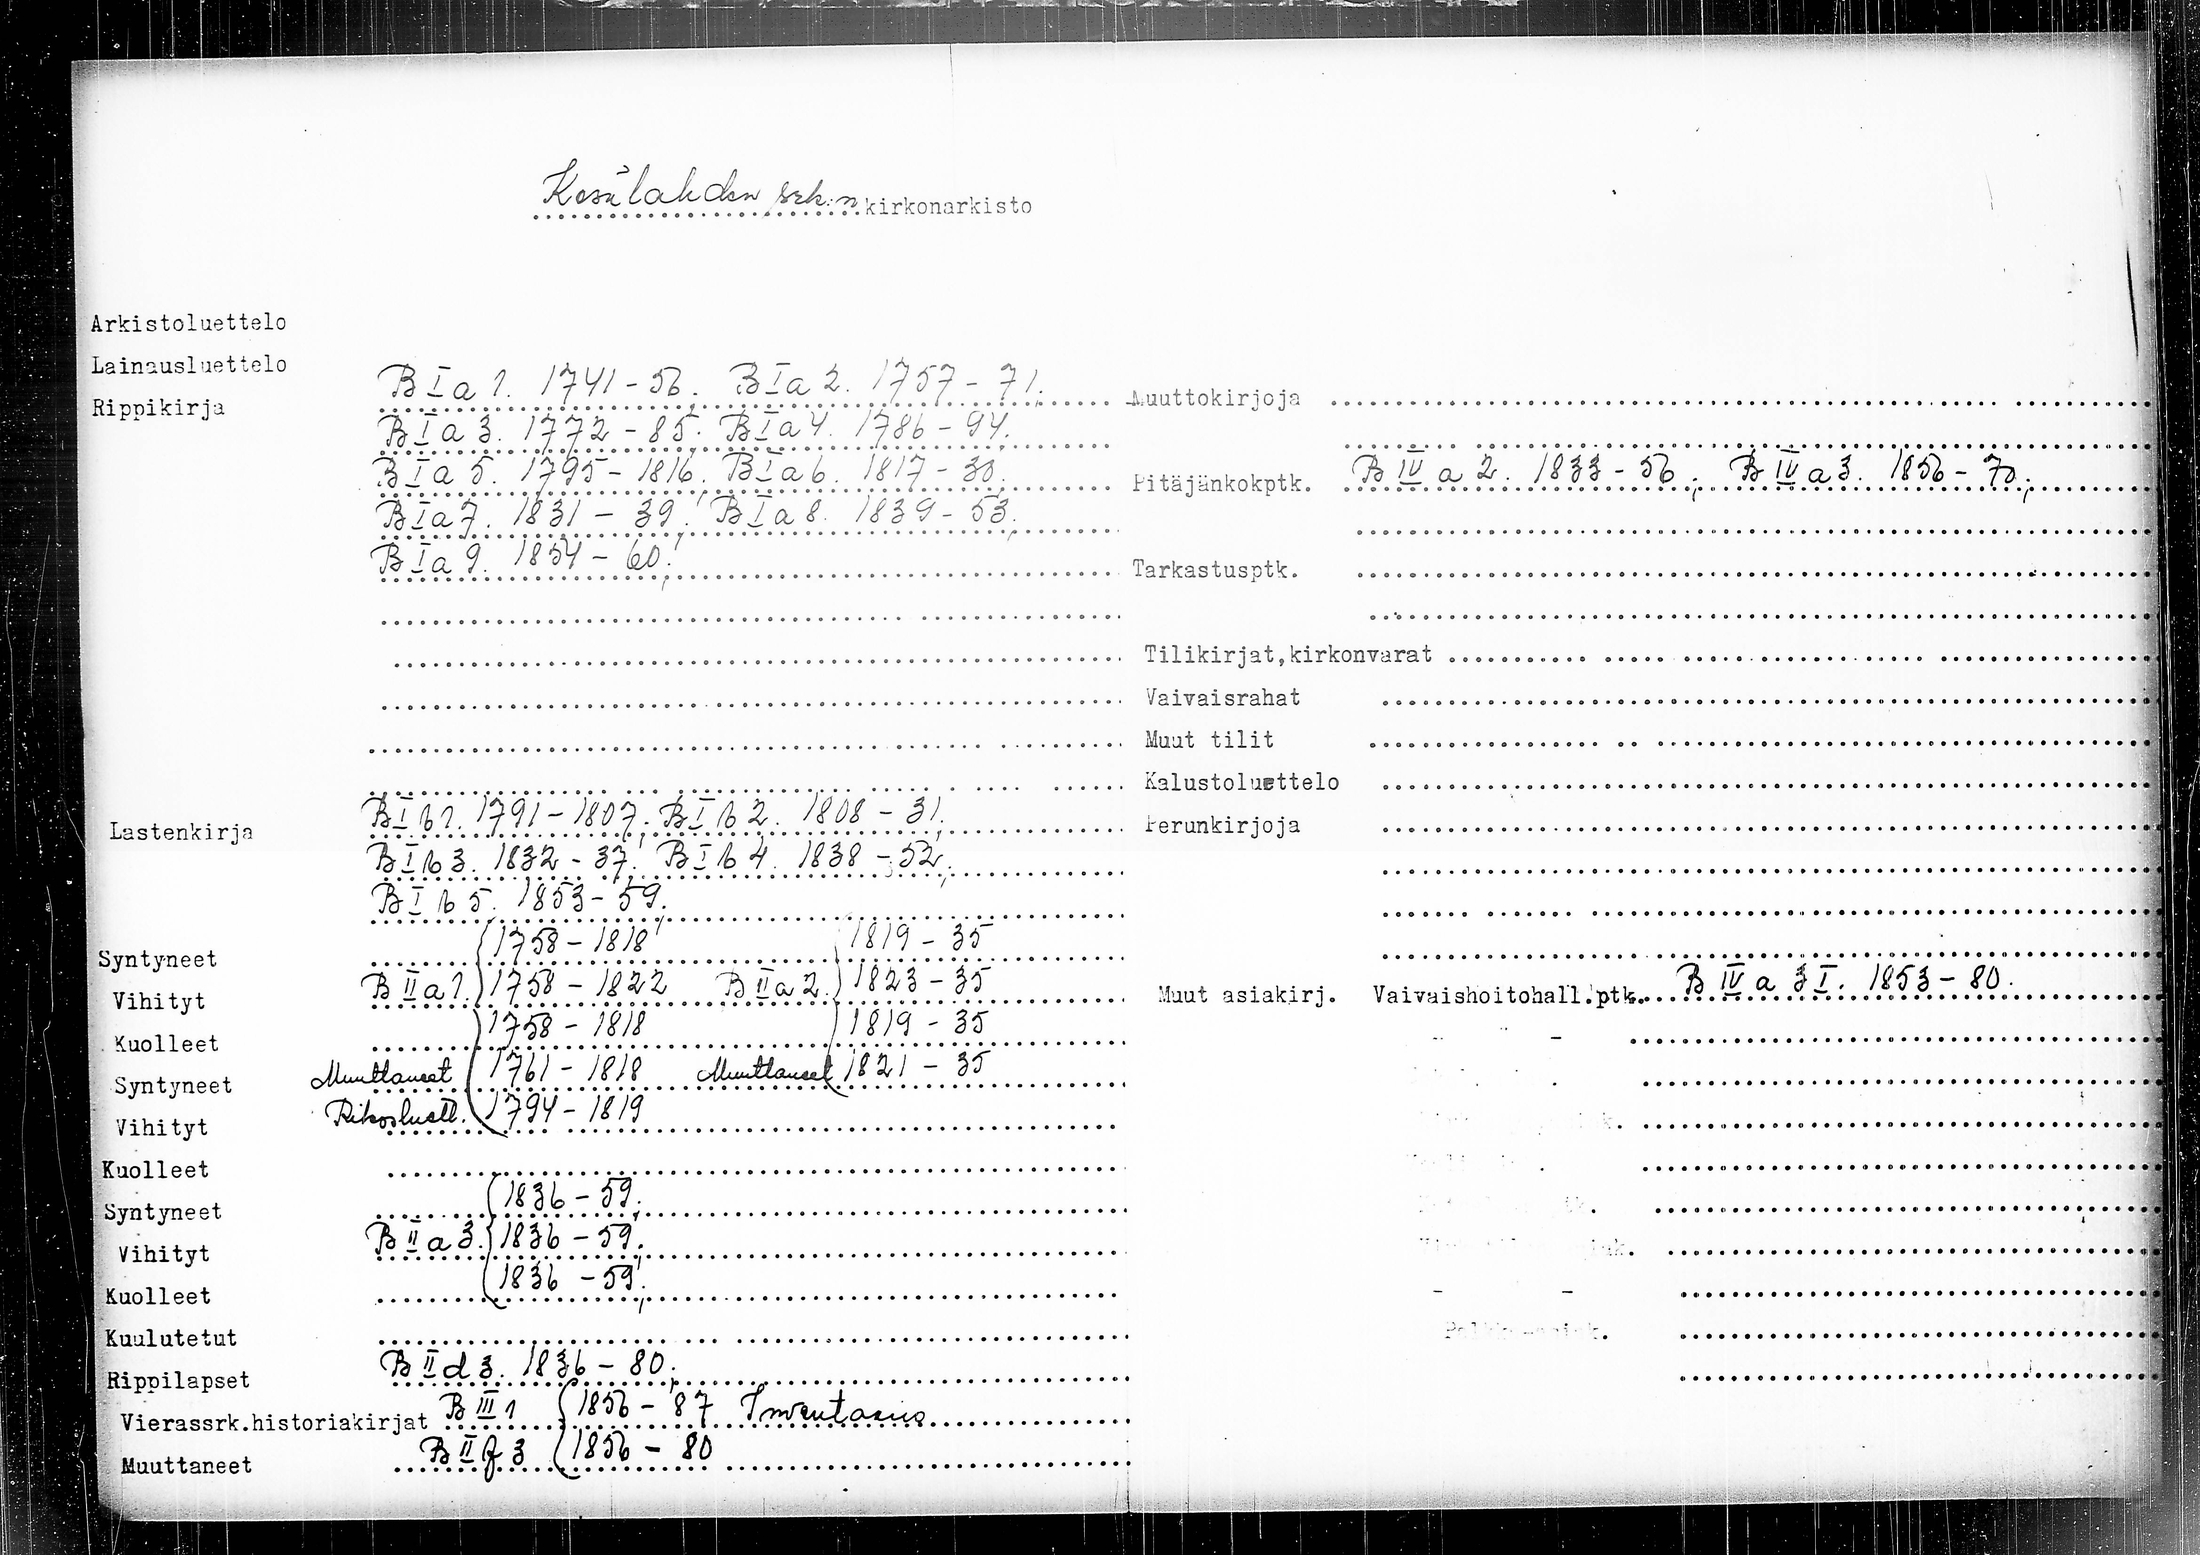 Kesälahden srk:n kirkonarkisto
Arkistoluettelo
Lainausluettelo
Rippikirja B I a 1. 1741-56. B I a 2. 1757-71.
B I a 3. 1772-85. B I a 4. 1786-94.
B I a 5. 1795-1816. B I a 6. 1817-30.
B I a 7. 1831-39. B I a 8. 1839-53.
B I a 9. 1854-60.
Lastenkirja B I b 1. 1791-1807. B I b 2. 1808-31.
B I b 3. 1832-37. B I b 4. 1838-52.
B I b 5. 1853-59.
Syntyneet 1758-1818 1819-35
Vihityt B II a 1. 1758-1822 B II a 2. 1823-35
Kuolleet 1758-1818 1819-35
Syntyneet Muuttaneet 1761-1818 Muuttaneet 1821-35
Vihityt Rikosluett. 1794-1819
Kuolleet
Syntyneet 1836-59.
Vihityt B II a 3. 1836-59.
Kuolleet 1836-59.
Kuulutetut
Rippilapset B II d 3. 1836-80.
Vierassrk.historiakirjat B III 1 1856-87 Inventario
Muuttaneet B II f 3 1856-80
Muuttokirjoja
Pitäjänkokptk. B IV a 2. 1833-56; B IV a 3. 1856-70;
Tarkastusptk.
Tilikirjat,kirkonvarat
Vaivaisrahat
Muut tilit
Kalustoluettelo
Perunkirjoja
Muut asiakirj. Vaivaishoitohall.ptk. B IV a 3 I. 1853-80.